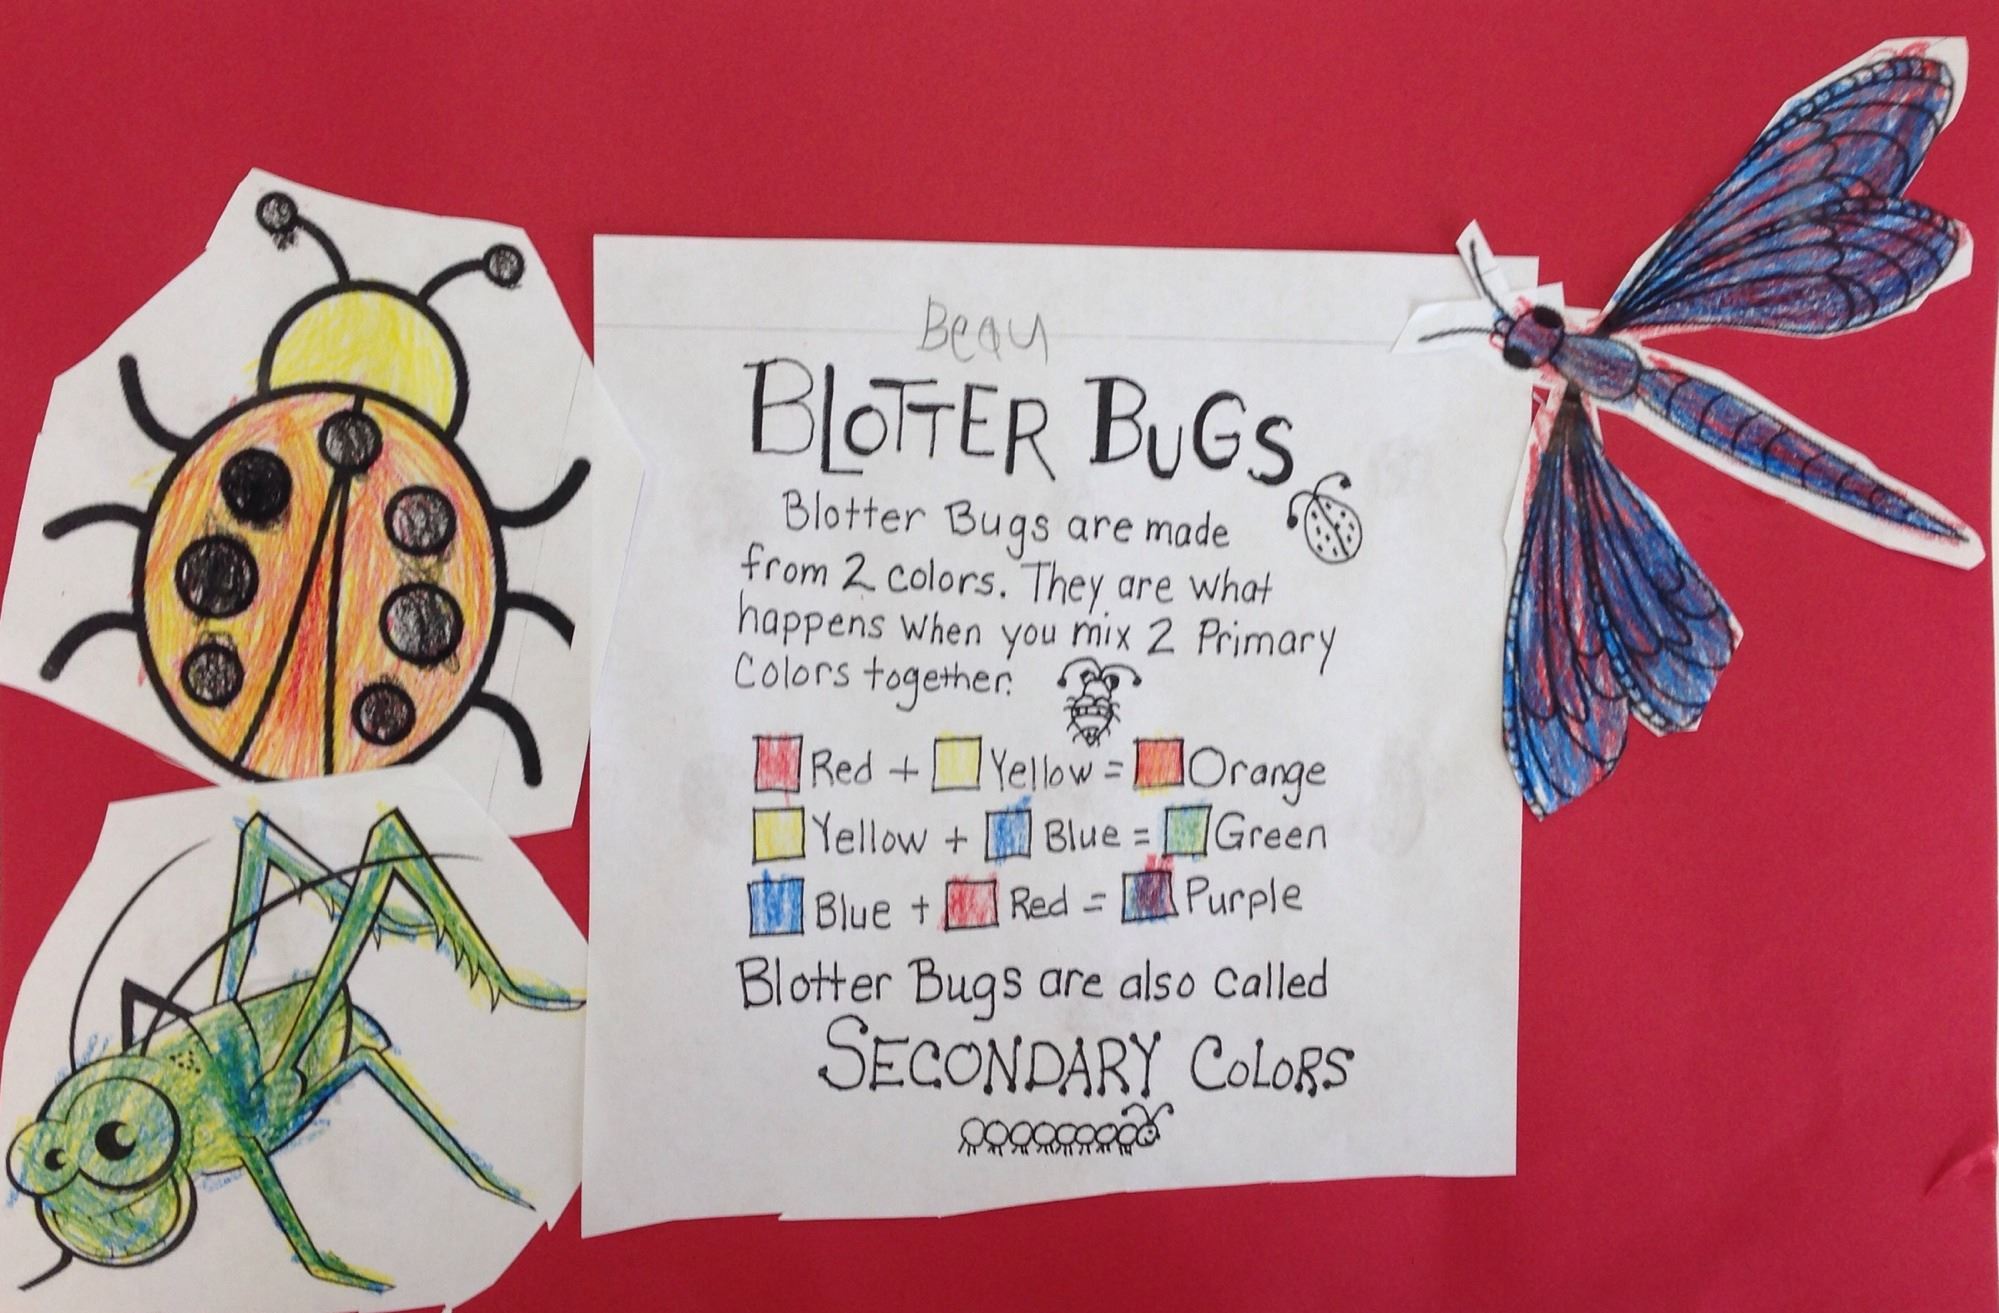 Beau
BLOTTER BUGS
Blotter Bugs are made
from 2 colors. They are what
happens when you mix 2 Primary
Colors together.
Red + Yellow = Orange
Yellow + Blue = Green
Blue + Red = Purple
Blotter Bugs are also called
SECONDARY COLORS